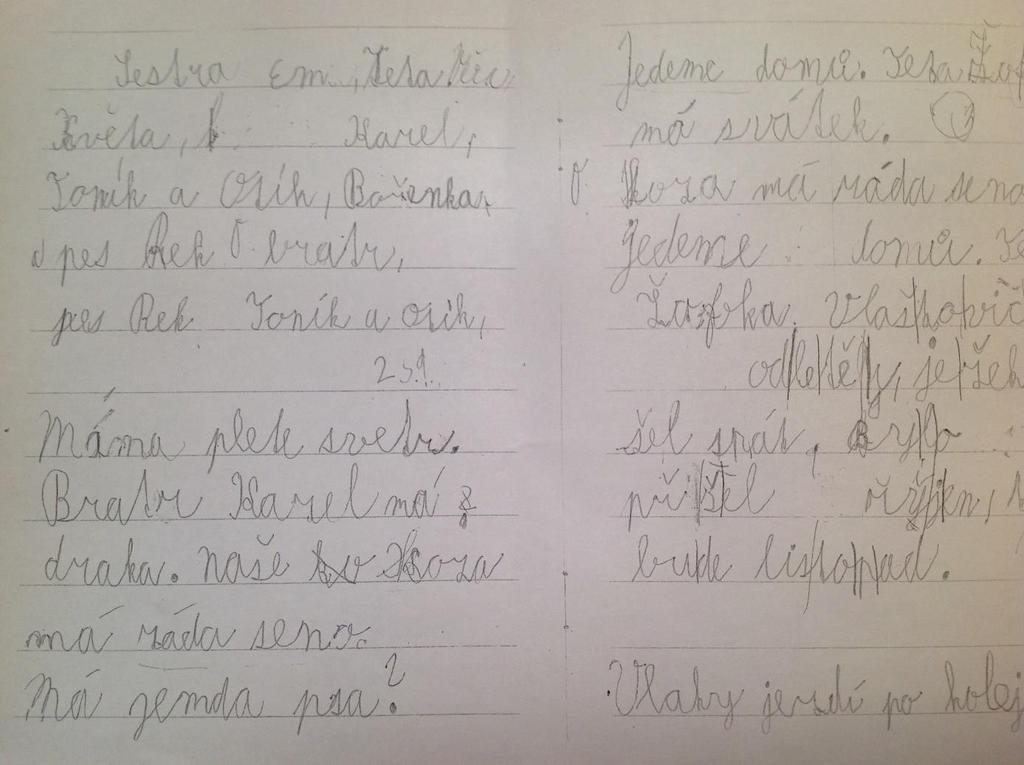 Sestra Em, Teta
Květa, Karel,
Toník a Ořík, Boženka,
pes Rek bratr,
pes Rek Toník a Ořík,
Máma plete svetr.
Bratr Karel má
draka. Naše Koza
má ráda seno.
Má jemda psa?
Jedeme domů. Teta
má svátek.
Koza má ráda seno
jedeme domů.
Žofka. Vlaštovič
odletěly, ježek
šel spát,
přišel říjen,
bude listopad.
Vlaky jezdí po kolej